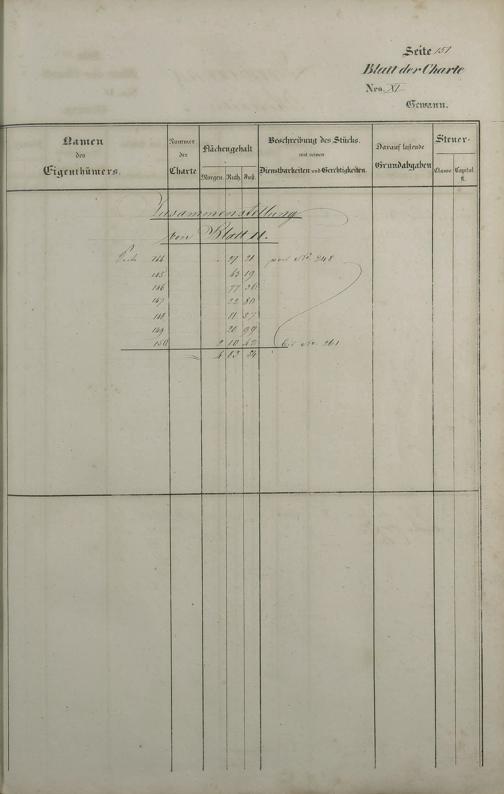 Seite 151
Blatt der Charte
Nro. XI
Gewann.
Namen des Eigenthümers.
Nummer der Charte
Flächengehalt
Morgen. Ruth. Fuß.
Beschreibung des Stücks.
mit seinen
Dienstbarkeiten und Gerechtigkeiten.
Darauf lastende Grundabgaben
Steuer-
Classe Capital fl.
Zusammenstellung
von Blatt 11.
144 21 21 No. 248
145 43 19
146 77 36
147 22 80
148 11 27
149 20 99
150 2 10 42 bis No. 261